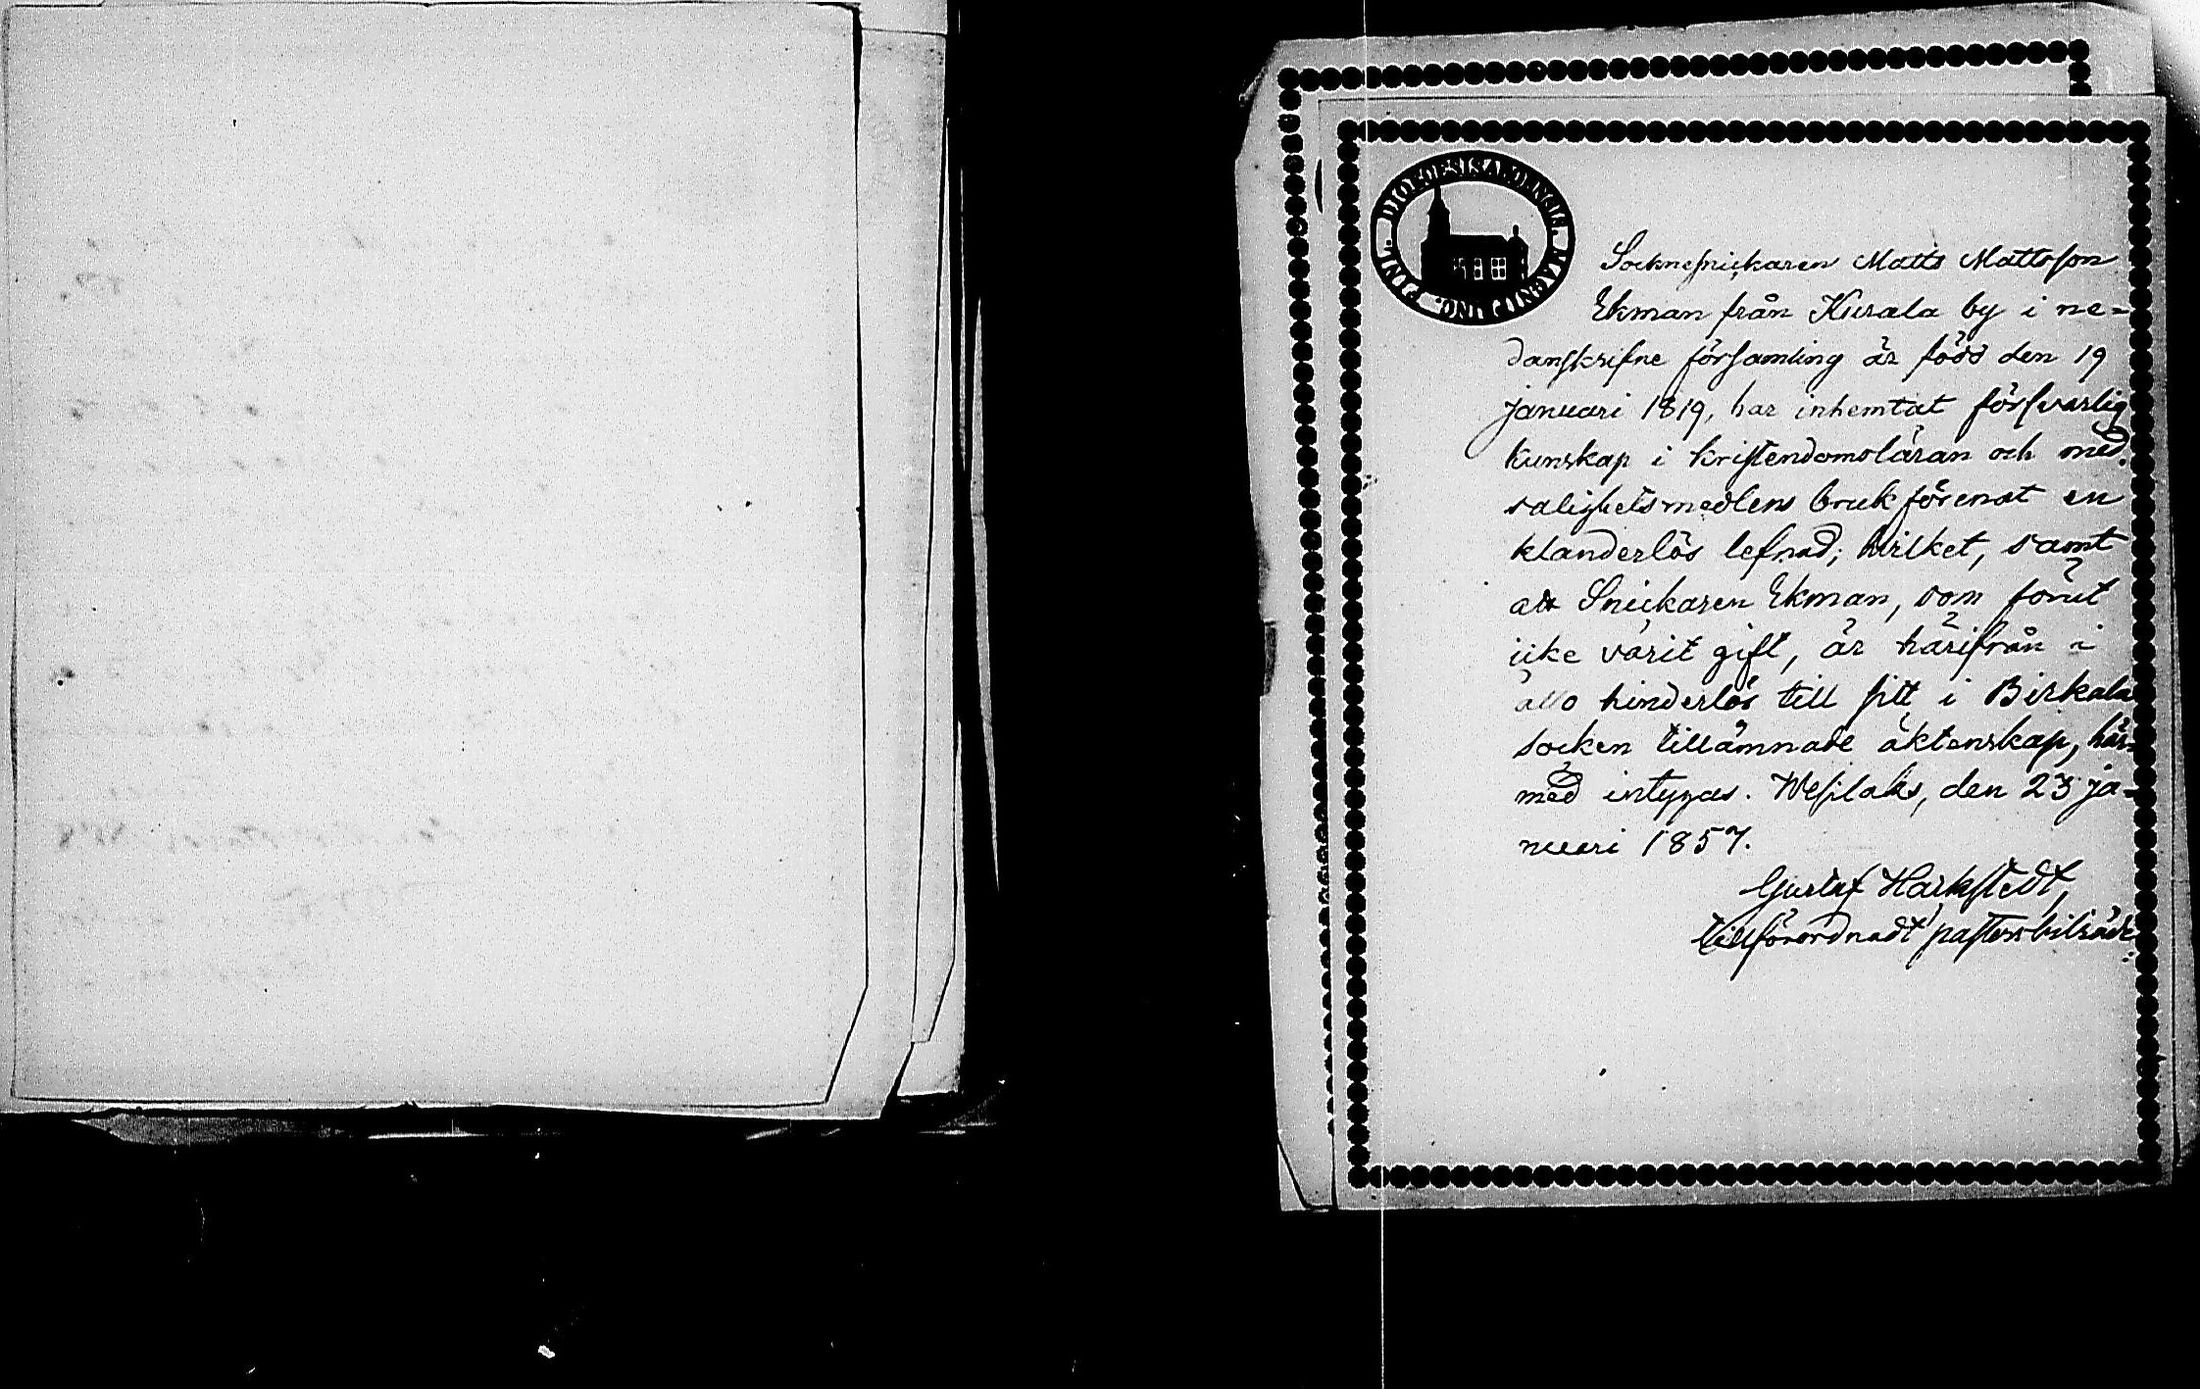 DIOECESIS ABOENSIS. MAGNI DUC. FINL.
Socknesnickaren Matts Mattsson
Ekman från Kurala by i ne-
danskrifne församling är född den 19
januari 1819, har inhemtat försvarlig
kunskap i kristendomsläran och med
salighetsmedlens bruk förenat en
klanderlös lefnad; hvilket, samt
att Snickaren Ekman, som förut
icke varit gift, är härifrån i
allo hinderlös till sitt i Birkala
socken tillämnade äktenskap, här-
med intygas. Wesilaks, den 23 ja-
nuari 1857.
Gustaf Harkstedt,
tillförordnadt pastorsbiträde